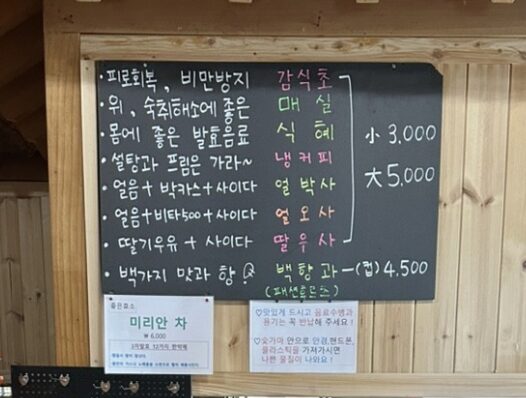 · 피로회복, 비만방지 감식초
· 위, 숙취해소에 좋은 매실
· 몸에 좋은 발효음료 식혜
· 설탕과 프림은 가라~ 냉커피
· 얼음 + 박카스 + 사이다 얼박사
· 얼음 + 비타500 + 사이다 얼오사
· 딸기우유 + 사이다 딸우사
小 3,000
大 5,000
· 백가지 맛과 향! 백향과 - (컵) 4,500
(패션후르츠)
좋은효소
미리안 차
₩ 6,000
♡맛있게 드시고 음료수병과
용기는 꼭 반납해 주세요!
♡숯가마 안으로 안경,핸드폰,
플라스틱을 가져가시면
나쁜 물질이 나와요!